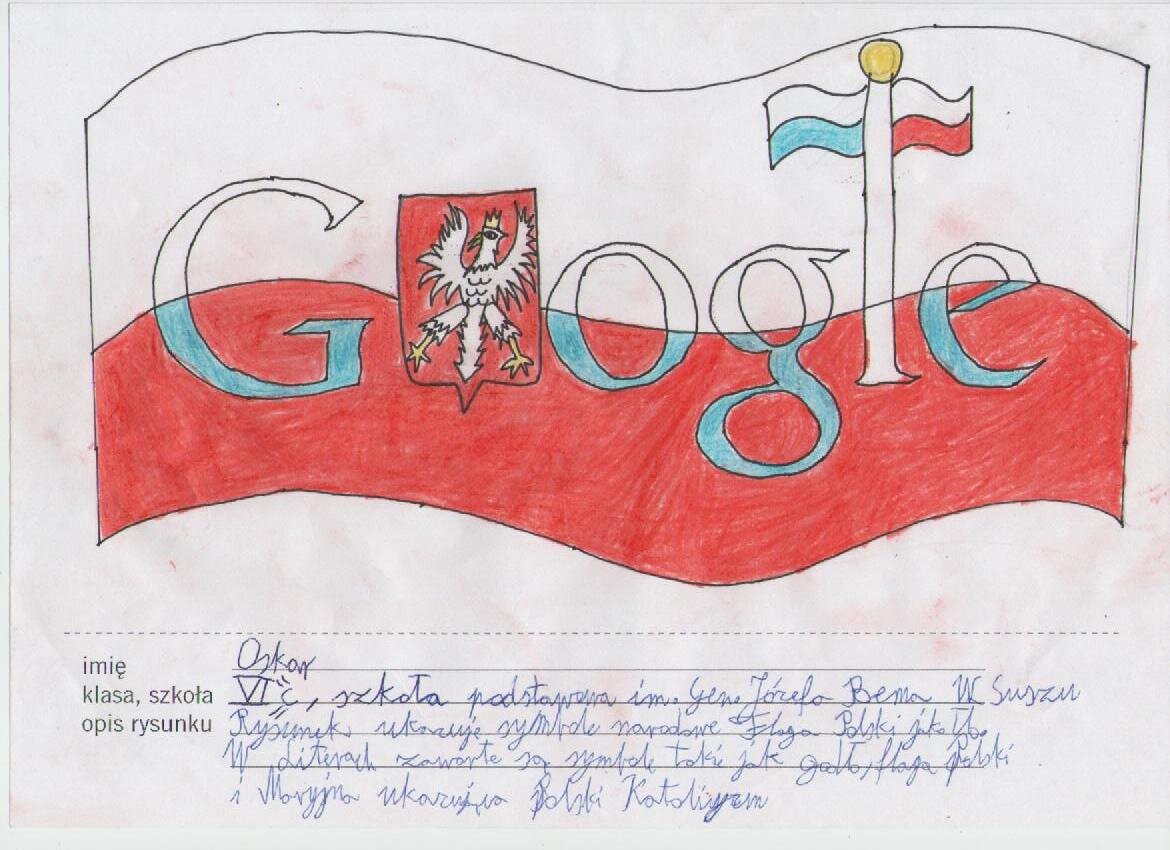 Google
imię Oskar
klasa, szkoła VI "c", szkoła podstawowa im. Gen. Józefa Bema W Suszu
opis rysunku Rysunek ukazuje symbole narodowe Flaga Polski jako tło.
W Literach zawarte są symbole takie jak godło, flaga Polski
i Maryjna ukazująca Polski Katolicyzm